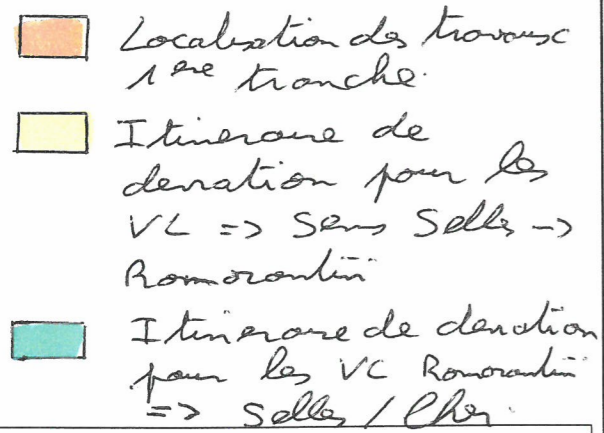 Localisation des travaux
1ere tranche.
Itineraire de
deviation pour les
VL => Sens Selles ->
Romorantin
Itineraire de deviation
pour les VL Romorantin
=> Selles / Cher.